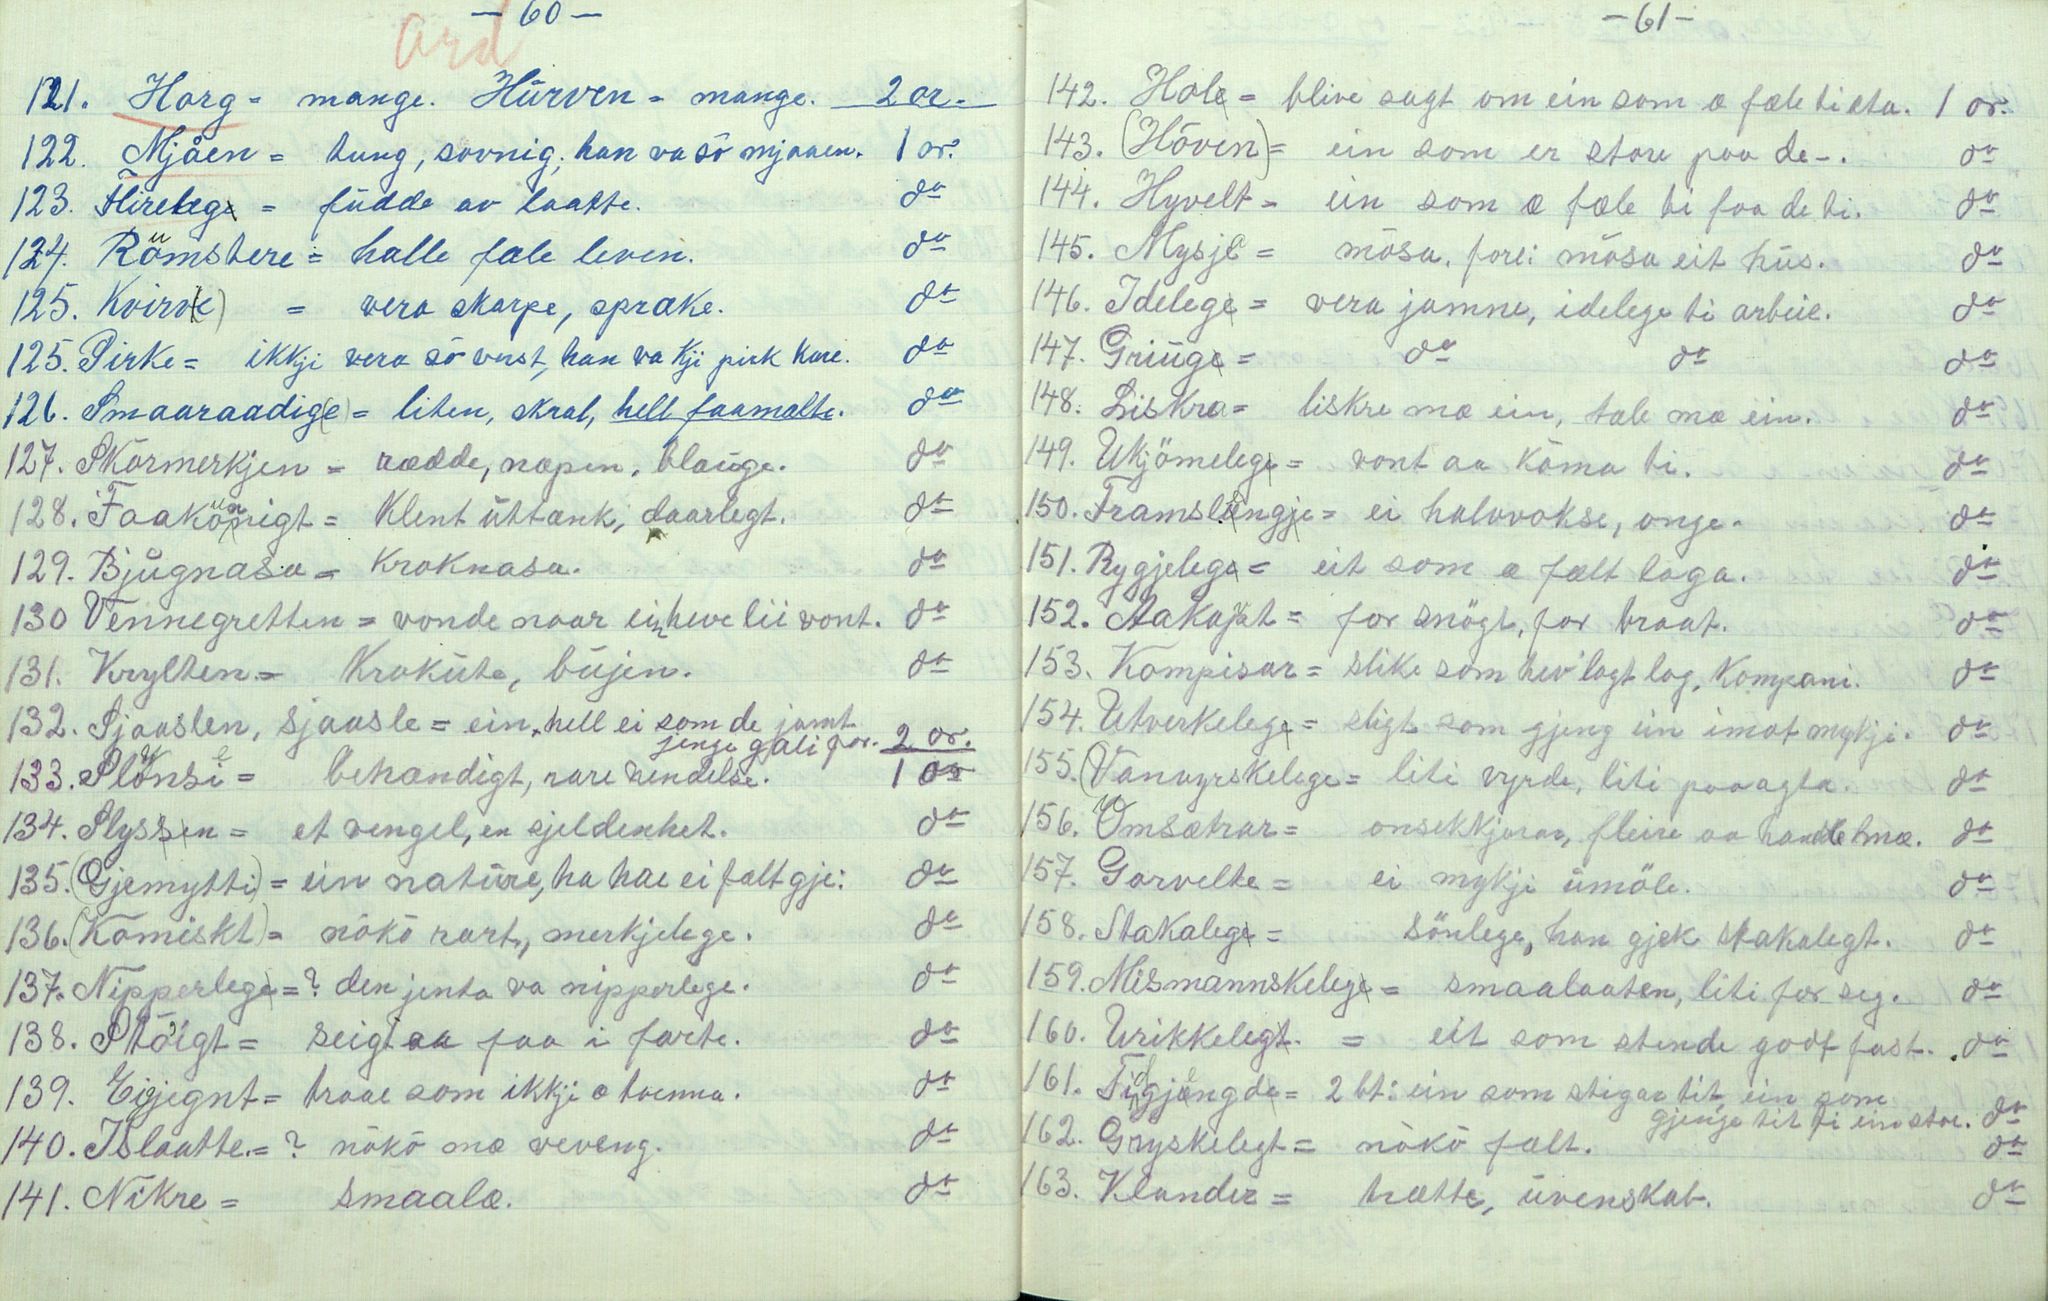 — 60 —
ard
121. Horg = mange. Hürven = mange. 2 or.
122. Mjåen = tung, sovnig; han va sö mjaaen. 1 or.
123. Flirelege = füdde av laatte. do
124. Römstere = halle fæle leven. do
125. Kvirve) = vera skarpe, spræke. do
125. Pirke = ikkji vera sö verst, han va kji pirk kare. do
126. Smaaraadig(e) = liten, skral, hell faamælte. do
127. Skörmerkjen = rædde, næpen, blauge. do
128. Faakönigt = klent üttænk, daarlegt. do
129. Bjùgnasa = kroknasa. do
130 Vennegretten = vonde naar ein heve lii vont. do
131. Krylten = Kroküte, büjen. do
132. Sjaaslen, sjaasle = ein, hell ei som de jamt
jenge gali for. 2 or.
133. Slönsi = behændigt, rare hendelse. 1 or
134. Slyssen = et vengel, en sjeldenhet. do
135. (Gjemytti) = ein natüre, ha hae ei falt gje: do
136. (Komiskt) = nökö rart, merkjelege. do
137. Nipperlege = ? den jenta va nipperlege. do
138. Stöigt = seigt aa faa i farte. do
139. Eigjegnt = traae som ikkji æ tvenna. do
140. Islaatte = ? nökö mæ veveng. do
141. Nikre = smaalæ. do
— 61 —
142. Hole = blive sagt om ein som æ fæle ti æta. 1 or.
143. (Höven) = ein som er store paa de –. do
144. Hyvelt = ein som æ fæle ti faa de ti. do
145. Mysje = mösa, fore: mösa eit hüs. do
146. Idelege = vera jamne, idelege ti arbeie. do
147. Griüge = do do do
148. Liskra = liskre mæ ein, tale mæ ein. do
149. Ukjömelege = vont aa köma ti. do
150. Framslengje = ei halvvokse, onge. do
151. Rygjelege = eit som æ fælt laga. do
152. Aakaat = for snögt, for braat. do
153. Kompisar = slike som hev' lagt lag, Kompani. do
154. Utverkelege = sligt som gjeng ein imot mykji. do
155. (Vanvyrskelege = liti vyrde, liti paaagta. do
156. Omsætrar = onsekkjarar, fleire aa handle mæ. do
157. Gorvelte = ei mykji ümöle. do
158. Stakalege = sönlege, han gjek stakalegt. do
159. Mismannskelege = smaalaaten, liti for seg. do
160. Urikkelegt. = eit som stende godt fast. do
161. Tidgjengde = 2 bt: ein som stigar tit, ein som
gjenge tit ti ein stæ. do
162. Gryskelegt = nökö fælt. do
163. Klander = trætte, üvenskab. do